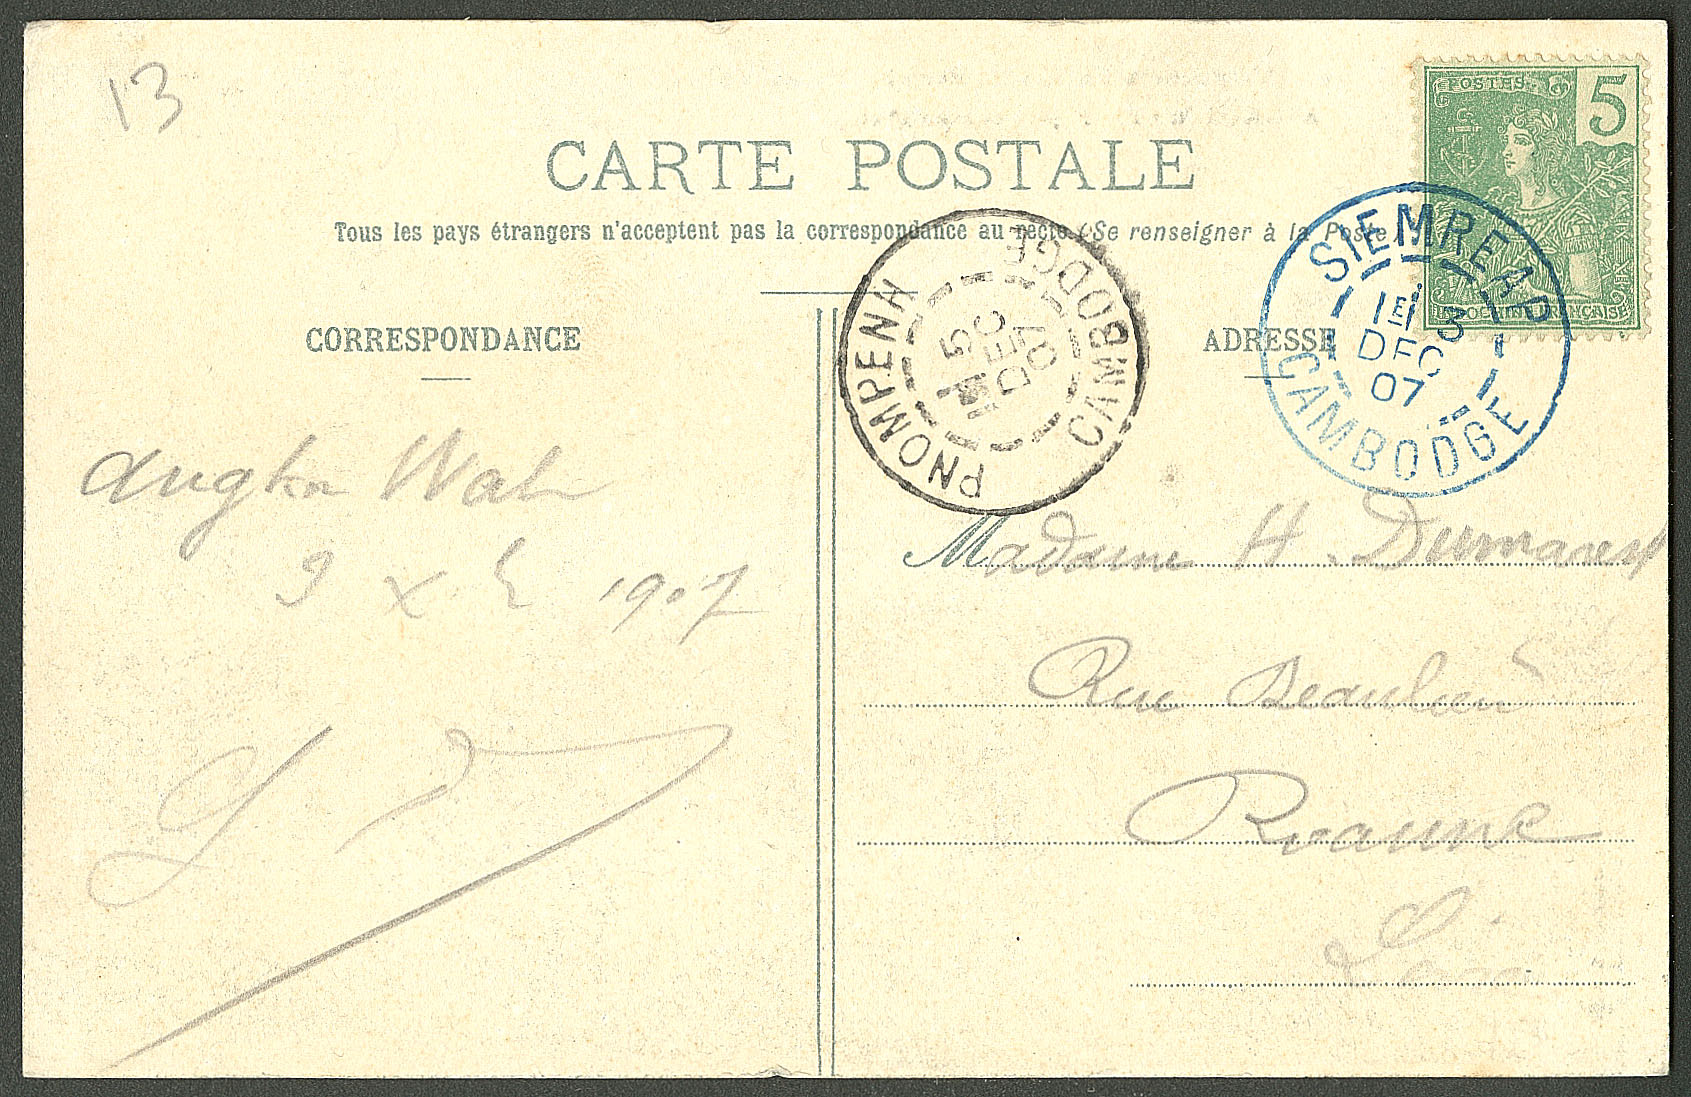 13
POSTES
5
INDOCHINE FRANÇAISE
CARTE POSTALE
Tous les pays étrangers n'acceptent pas la correspondance au recto (Se renseigner à la Poste)
CORRESPONDANCE
ADRESSE
PNOMPENH
5
DEC
07
CAMBODGE
SIEMREAP
3
DEC
07
CAMBODGE
Angkor Wat
1907
Madame H. Dumarest
Rue Beaulieu
Roanne
Loire